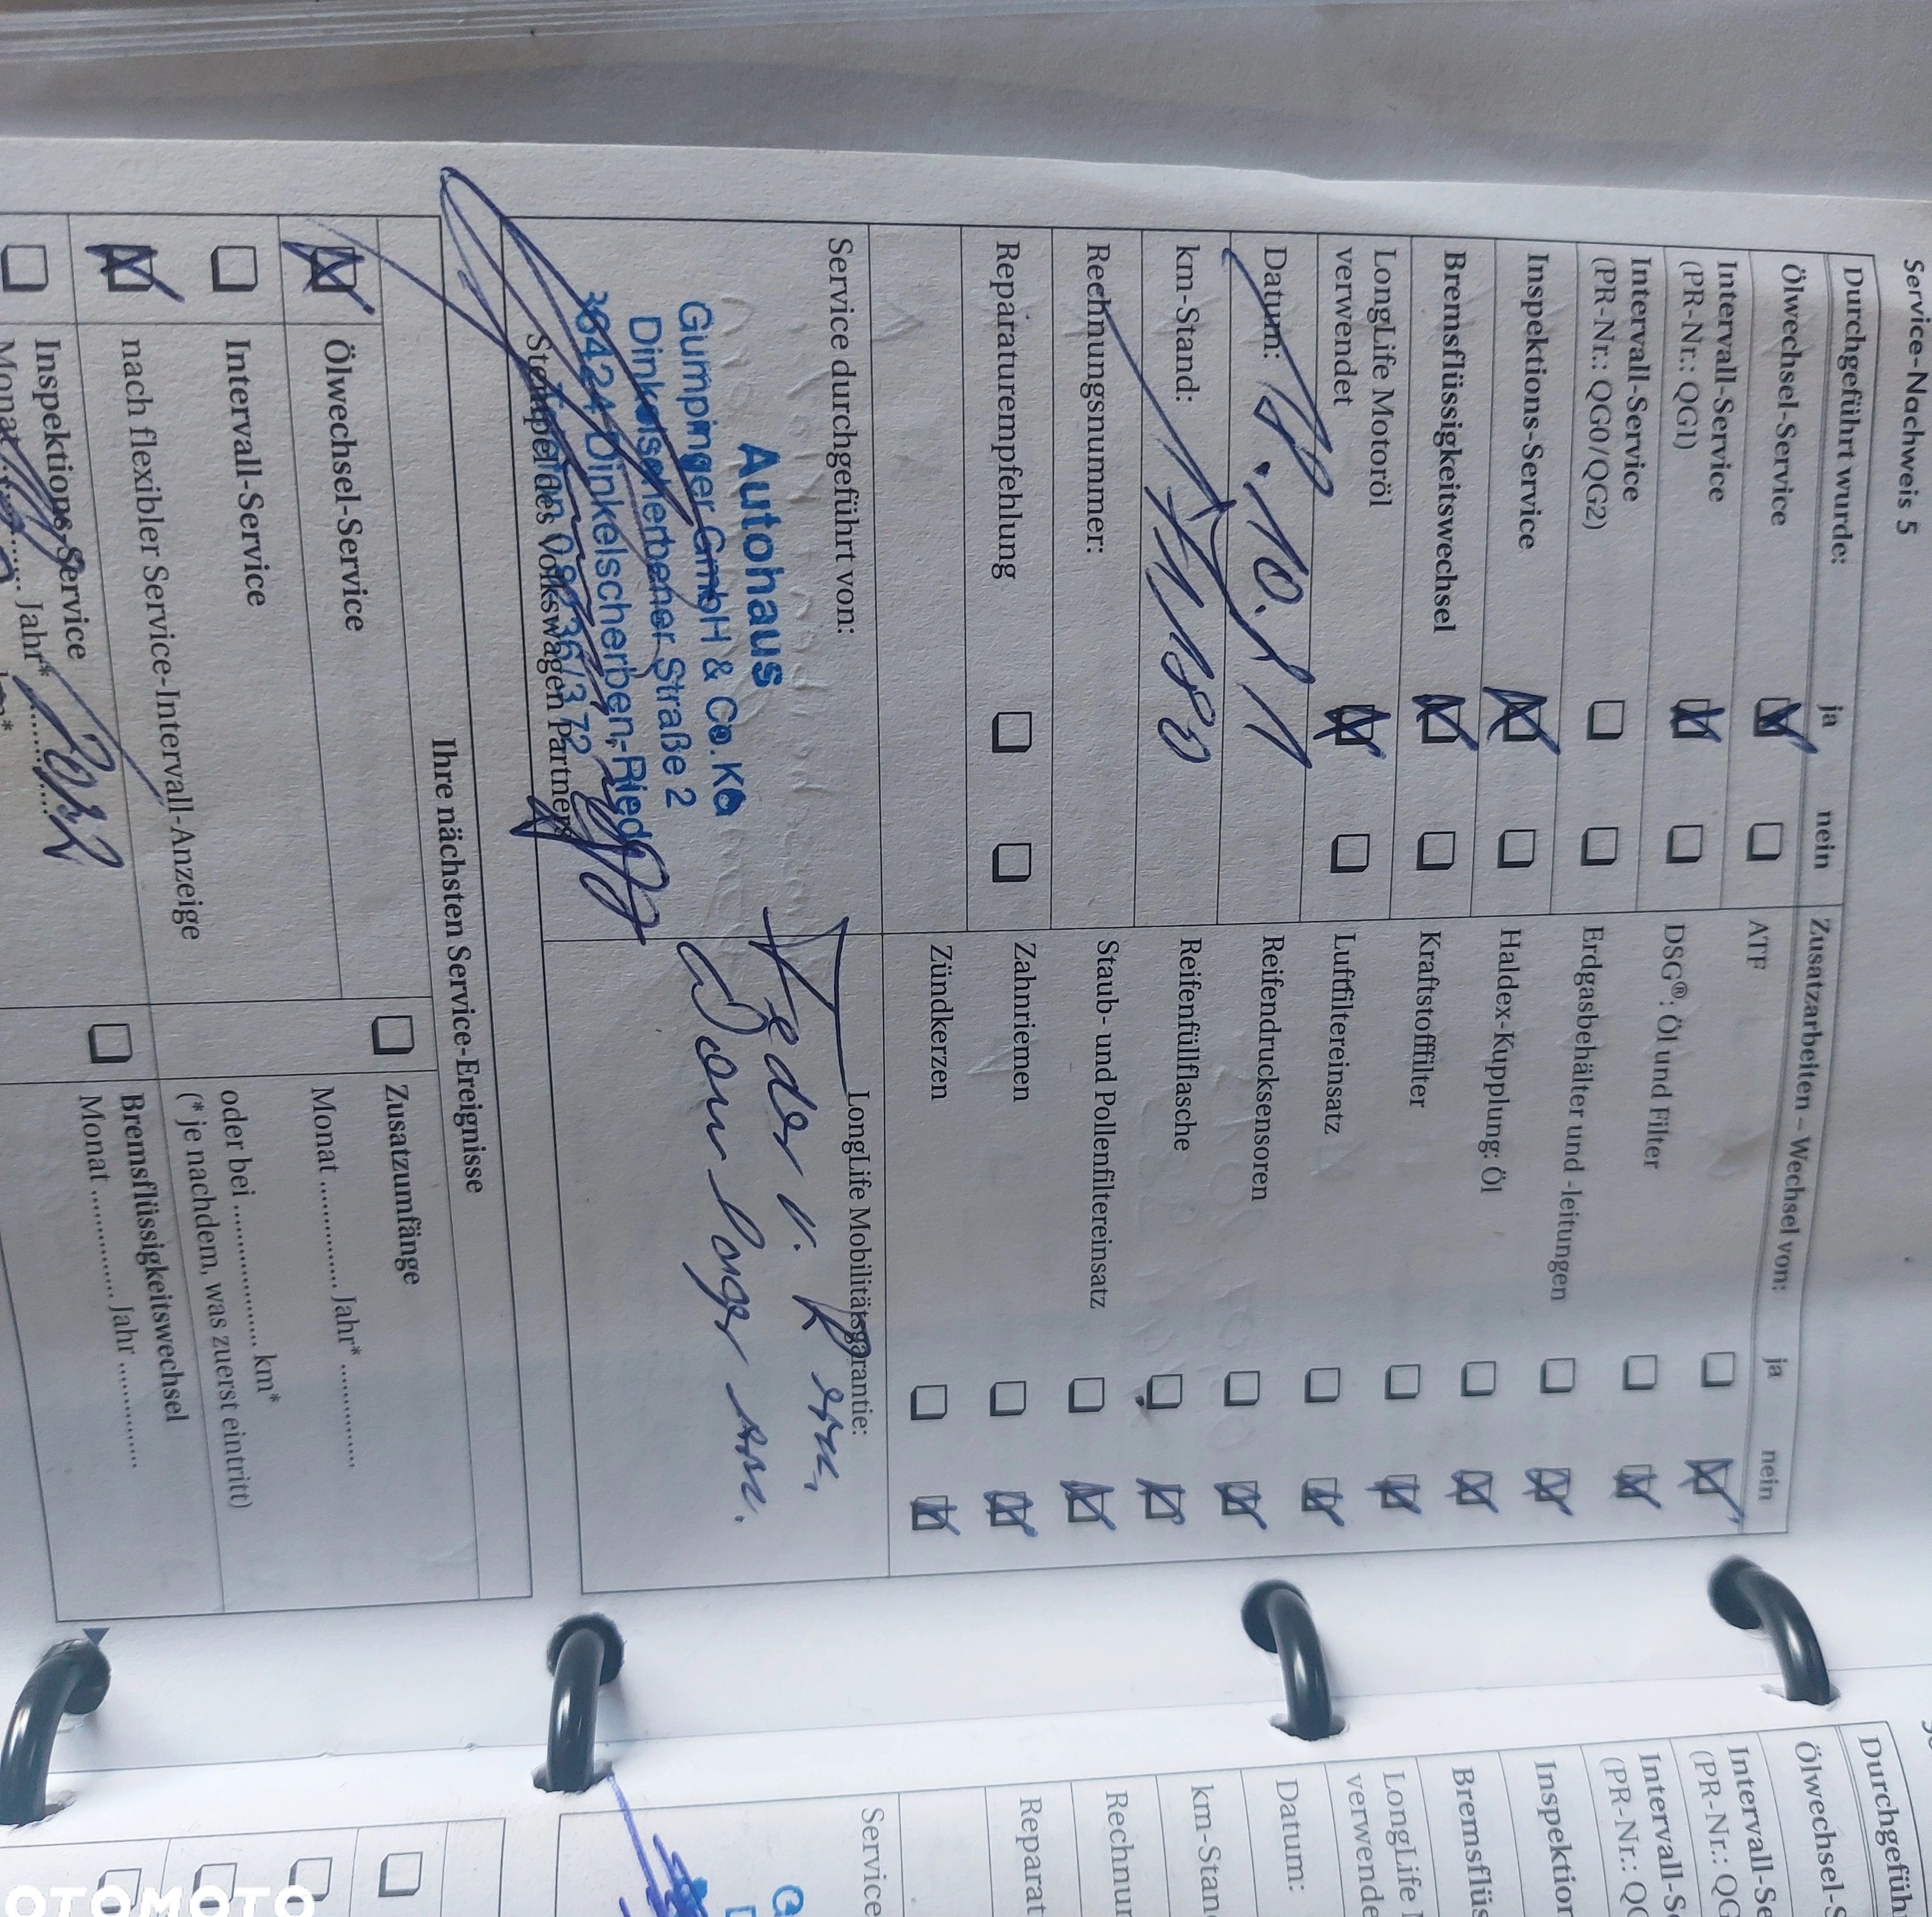 Service-Nachweis 5
Durchgeführt wurde: ja nein
Ölwechsel-Service
Intervall-Service
(PR-Nr.: QG1)
Intervall-Service
(PR-Nr.: QG0/QG2)
Inspektions-Service
Bremsflüssigkeitswechsel
LongLife Motoröl
verwendet
Datum: .10.11
km-Stand:
Rechnungsnummer:
Reparaturempfehlung
Zusatzarbeiten – Wechsel von: ja nein
ATF
DSG®: Öl und Filter
Erdgasbehälter und -leitungen
Haldex-Kupplung: Öl
Kraftstofffilter
Luftfiltereinsatz
Reifendrucksensoren
Reifenfüllflasche
Staub- und Pollenfiltereinsatz
Zahnriemen
Zündkerzen
Service durchgeführt von:
Autohaus
Gumpinger GmbH & Co. KG
Dinkelscherbener Straße 2
86424 Dinkelscherben-Ried
Stempel des Volkswagen Partners
LongLife Mobilitätsgarantie:
Feder v. R ern.
Domlager ern.
Ihre nächsten Service-Ereignisse
Ölwechsel-Service
Intervall-Service
nach flexibler Service-Intervall-Anzeige
Inspektions-Service
Monat ............ Jahr* 2012
Zusatzumfänge
Monat ............ Jahr* ............
oder bei .................. km*
(* je nachdem, was zuerst eintritt)
Bremsflüssigkeitswechsel
Monat ............ Jahr ............
Durchgeführ
Ölwechsel-S
Intervall-Se
(PR-Nr.: QG
Intervall-Se
(PR-Nr.: QG
Inspektion
Bremsflüs
LongLife M
verwende
Datum:
km-Stan
Rechnur
Reparat
Service
OTOMOTO